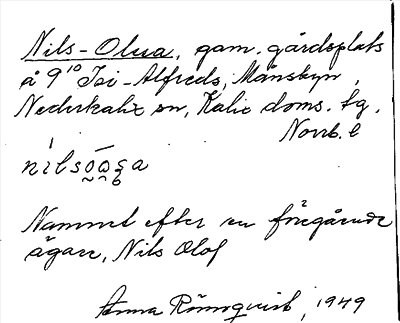 Nils-Olsa, gam. gårdsplats
å 9¹⁰ Isi-Alfreds, Månsbyn,
Nederkalix sn, Kalix doms. tg.
Norrb. l
Namnet efter en föregående
ägare, Nils Olof
Anna Rönnqvist, 1949